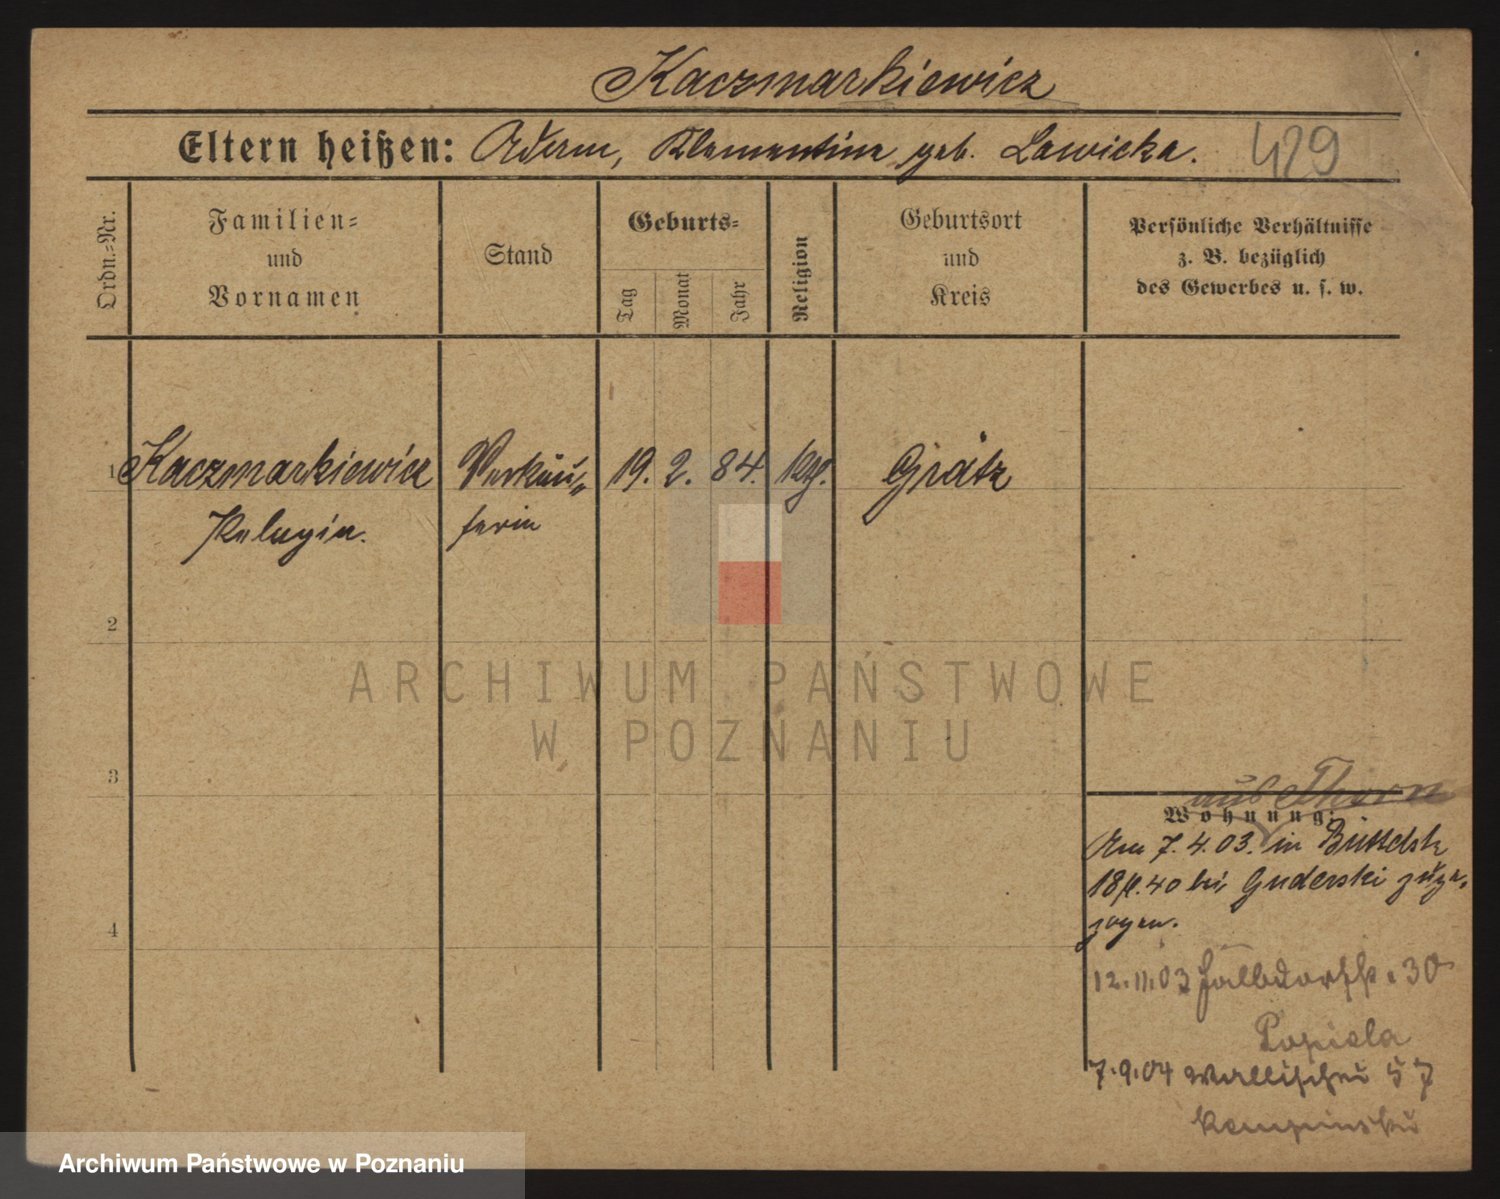 Kaczmarkiewicz
Eltern heißen: Adam, Klementine geb. Lawicka.
429
Ordn.=Nr.
Familien=
und
Vornamen
Stand
Geburts=
Tag
Monat
Jahr
Religion
Geburtsort
und
Kreis
Persönliche Verhältnisse
z. B. bezüglich
des Gewerbes u. s. w.
1 Kaczmarkiewicz Verkäu= 19. 2. 84. kg. Grätz
Pelagia. ferin
2
ARCHIWUM PAŃSTWOWE
W POZNANIU
3
aus Thorn
Wohnung:
Am 7. 4. 03. in
40 bei Guderski zuge=
zogen.
12.11.03 30
Popiela
4
7.9.04 Wallischei 57
Archiwum Państwowe w Poznaniu